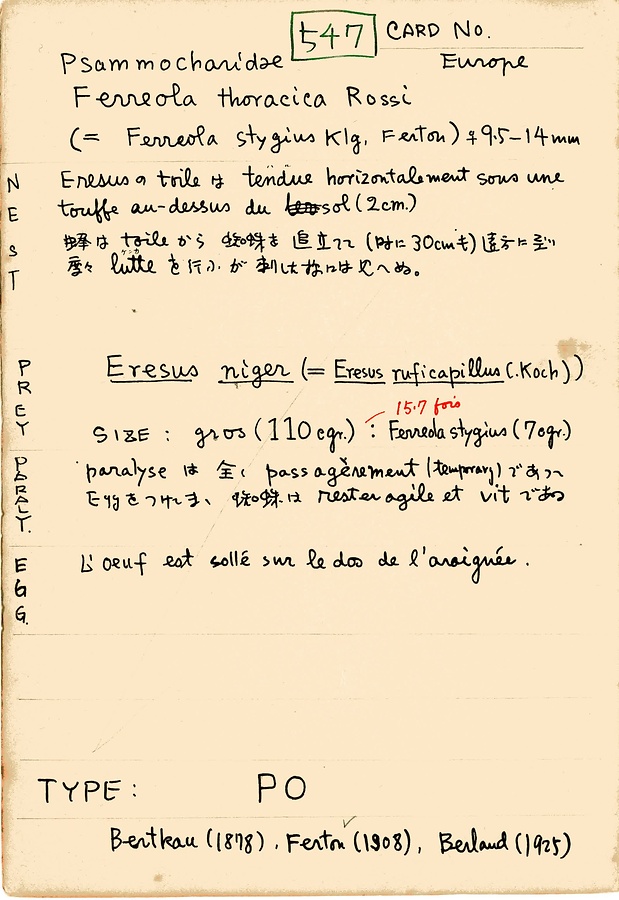 547 CARD No.
Psammocharidae Europe
Ferreola thoracica Rossi
(= Ferreola stygius Klg, Ferton) ♀ 9.5–14mm
NEST
Eresusの toile は tendue horizontalement sous une
touffe au-dessus du sol (2cm.)
蜂は toile から 蜘蛛を 追立てて (時に 30cmも) 遠方に至り
lutte を行ふが 刺した
PREY
Eresus niger (= Eresus ruficapillus (.Koch))
15.7 fois
SIZE : gros (110 cgr.) : Ferreola stygius (7cgr.)
PARALY.
paralyse は 全く passagèrement (temporary) であって
Eggをつけたまゝ 蜘蛛は rester agile et vit である
EGG.
L'oeuf est sollé sur le dos de l'araignée.
TYPE: PO
Bertkau (1878), Ferton (1908), Berland (1925)